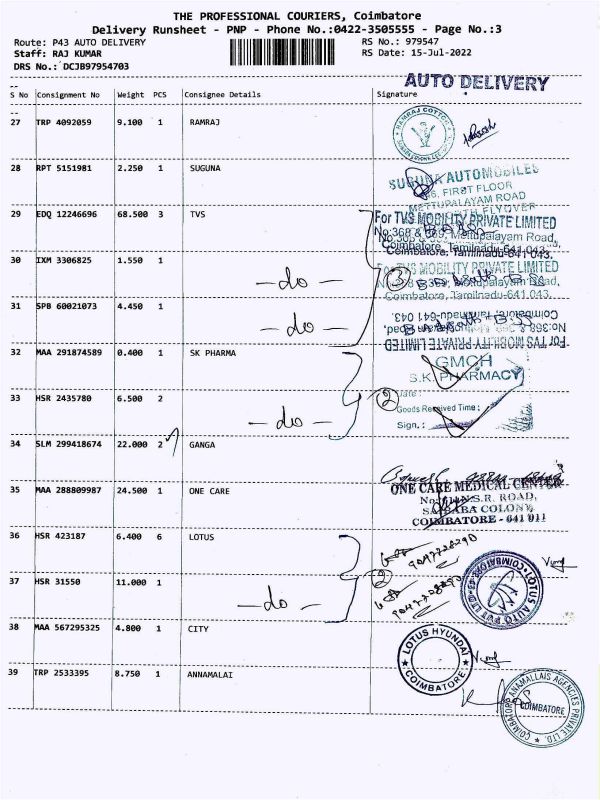 THE PROFESSIONAL COURIERS, Coimbatore
Delivery Runsheet - PNP - Phone No.:0422-3505555 - Page No.:3
Route: P43 AUTO DELIVERY RS No.: 979547
Staff: RAJ KUMAR RS Date: 15-Jul-2022
DRS No.: DCJB97954703
AUTO DELIVERY
S No Consignment No Weight PCS Consignee Details Signature
27 TRP 4092059 9.100 1 RAMRAJ
RAMRAJ COTTON
28 RPT 5151981 2.250 1 SUGUNA
SUGUNA AUTOMOBILES
FIRST FLOOR
METTUPALAYAM ROAD
NORTH FLYOVER
29 EDQ 12246696 68.500 3 TVS
For TVS MOBILITY PRIVATE LIMITED
No:368 & 369, Mettupalayam Road,
Coimbatore, Tamilnadu-641 043.
30 IXM 3306825 1.550 1
-do-
3
For TVS MOBILITY PRIVATE LIMITED
No:368 & 369, Mettupalayam Road,
Coimbatore, Tamilnadu-641 043.
31 SPB 60021073 4.450 1
-do-
Coimbatore, Tamilnadu-641 043.
No:368 & 369, Mettupalayam Road,
For TVS MOBILITY PRIVATE LIMITED
32 MAA 291874589 0.400 1 SK PHARMA
GMCH
S.K. PHARMACY
33 HSR 2435780 6.500 2
-do-
2
Date :
Goods Received Time :
Sign. :
34 SLM 299418674 22.000 2 GANGA
35 MAA 288809987 24.500 1 ONE CARE
ONE CARE MEDICAL CENTER
N.S.R. ROAD,
SAIBABA COLONY,
COIMBATORE - 641 011
36 HSR 423187 6.400 6 LOTUS
37 HSR 31550 11.000 1
-do-
2
LOTUS AUTO PVT LTD COIMBATORE
38 MAA 567295325 4.800 1 CITY
LOTUS HYUNDAI
COIMBATORE
39 TRP 2533395 8.750 1 ANNAMALAI
ANAMALLAIS AGENCIES PRIVATE LTD.
COIMBATORE